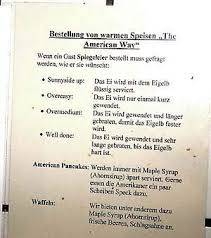 Bestellung von warmen Speisen „The
American Way“
Wenn ein Gast Spiegeleier bestellt muss gefragt
werden, wie er sie wünscht:
• Sunnyside up: Das Ei wird mit dem Eigelb
flüssig serviert.
• Overeasy: Das Ei wird nur einmal kurz
gewendet.
• Overmedium: Das Ei wird gewendet und länger
gebraten, damit das Eigelb fester
wird.
• Well done: Das Ei wird gewendet und sehr
lange gebraten, bis das Eigelb
hart ist.
American Pancakes: Werden immer mit Maple Syrup
(Ahornsirup) apart serviert. Gerne
essen die Amerikaner ein paar
Scheiben Speck dazu.
Waffeln: Wir bieten unter anderem dazu
Maple Syrup (Ahornsirup),
frische Beeren, Schlagsahne an.